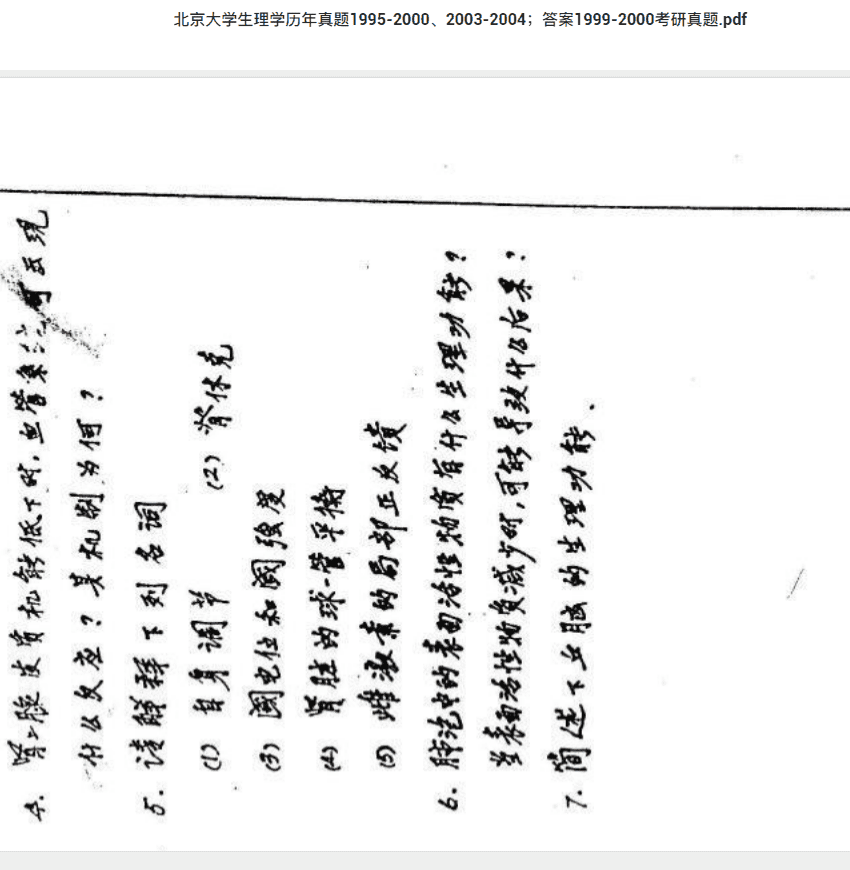 北京大学生理学历年真题1995-2000、2003-2004；答案1999-2000考研真题.pdf
4. 肾上腺皮质机能低下时，血管紧张可出现
什么反应？其机制为何？
5. 请解释下列名词
(1) 自身调节 (2) 脊休克
(3) 阈电位和阈强度
(4) 肾脏的球-管平衡
(5) 雌激素的局部正反馈
6. 肺泡中的表面活性物质有什么生理功能？
当表面活性物质减少时，可能导致什么后果？
7. 简述下丘脑的生理功能．